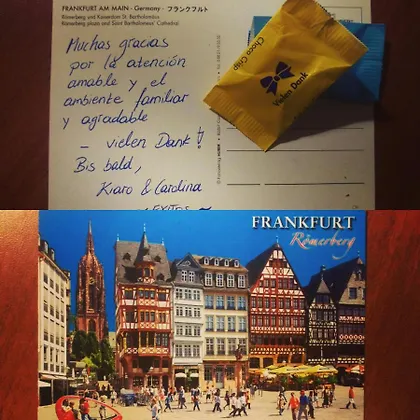 FRANKFURT AM MAIN - Germany - フランクフルト
Römerberg und Kaiserdom St. Bartholomäus
Römerberg plaza and Saint Bartholomeus' Cathedral
Muchas gracias
por la atención
amable y el
ambiente familiar
y agradable
- vielen Dank!
Bis bald,
Kiaro & Carolina
- EXITOS ~
Choco Crisp
Vielen Dank
FRANKFURT
Römerberg